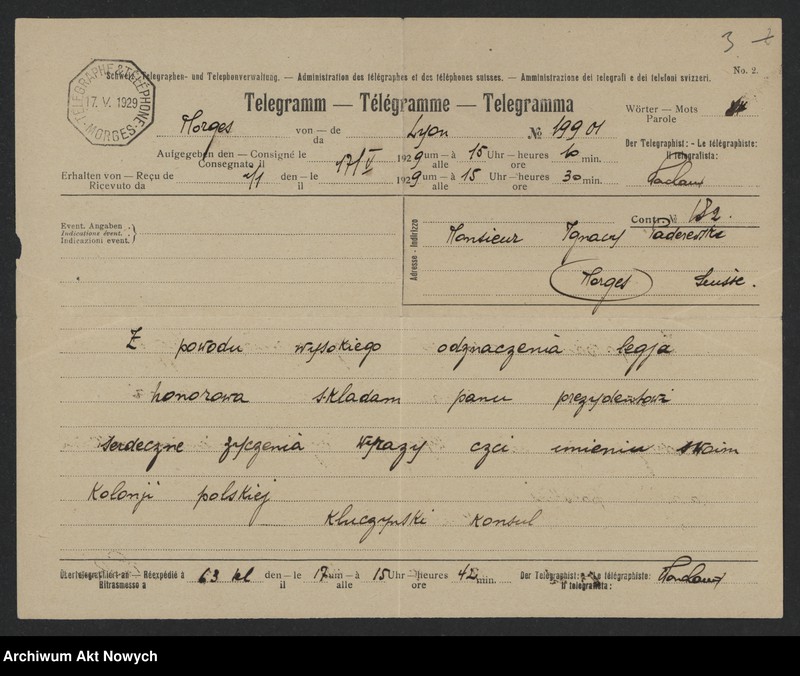 3
Schweiz. Telegraphen- und Telephonverwaltung. — Administration des télégraphes et des téléphones suisses. — Amministrazione dei telegrafi e dei telefoni svizzeri.
No. 2.
TELEGRAPHE & TELEPHONE
17. V. 1929
MORGES
Telegramm — Télégramme — Telegramma
Wörter — Mots
Parole
Morges von — de Lyon № 19901
da
Der Telegraphist: - Le télégraphiste:
Il telegrafista:
Aufgegeben den — Consigné le 17/V 1929 um — à 15 Uhr — heures 10 min.
Consegnato il alle ore
Erhalten von — Reçu de 2/1 den — le 1929 um — à 15 Uhr — heures 30 min.
Ricevuto da il alle ore
Event. Angaben
Indications évent.
Indicazioni event.
Adresse - Indirizzo
Contr. № 182.
Monsieur Ignacy Paderewski
Morges Suisse.
Z powodu wysokiego odznaczenia legja
honorowa skladam panu prezydentowi
serdeczne i zyczenia wyrazy czci imieniu swoim
Kolonji polskiej
Kluczynski Konsul
Übertelegraphiert an — Réexpédié à 63 tel den — le 17 um — à 15 Uhr — heures 42 min.
Ritrasmesso a il alle ore
Der Telegraphist: - Le télégraphiste:
Il telegrafista:
Archiwum Akt Nowych